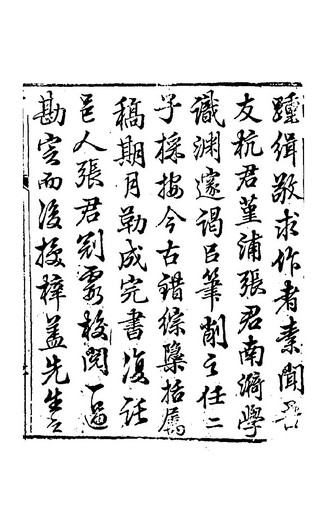 踵緝敬求作者素聞吾
友杭君堇浦張君南漪學
識淵邃謁㠯筆削之任二
子採按今古錯綜櫽括屬
稿期月勒成完書復託
邑人張君剡霞校閱一過
勘定而後授梓蓋先生之